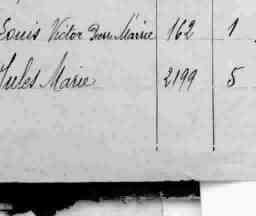 Louis Victor Pierre Marie 162 1
Jules Marie 2199 5